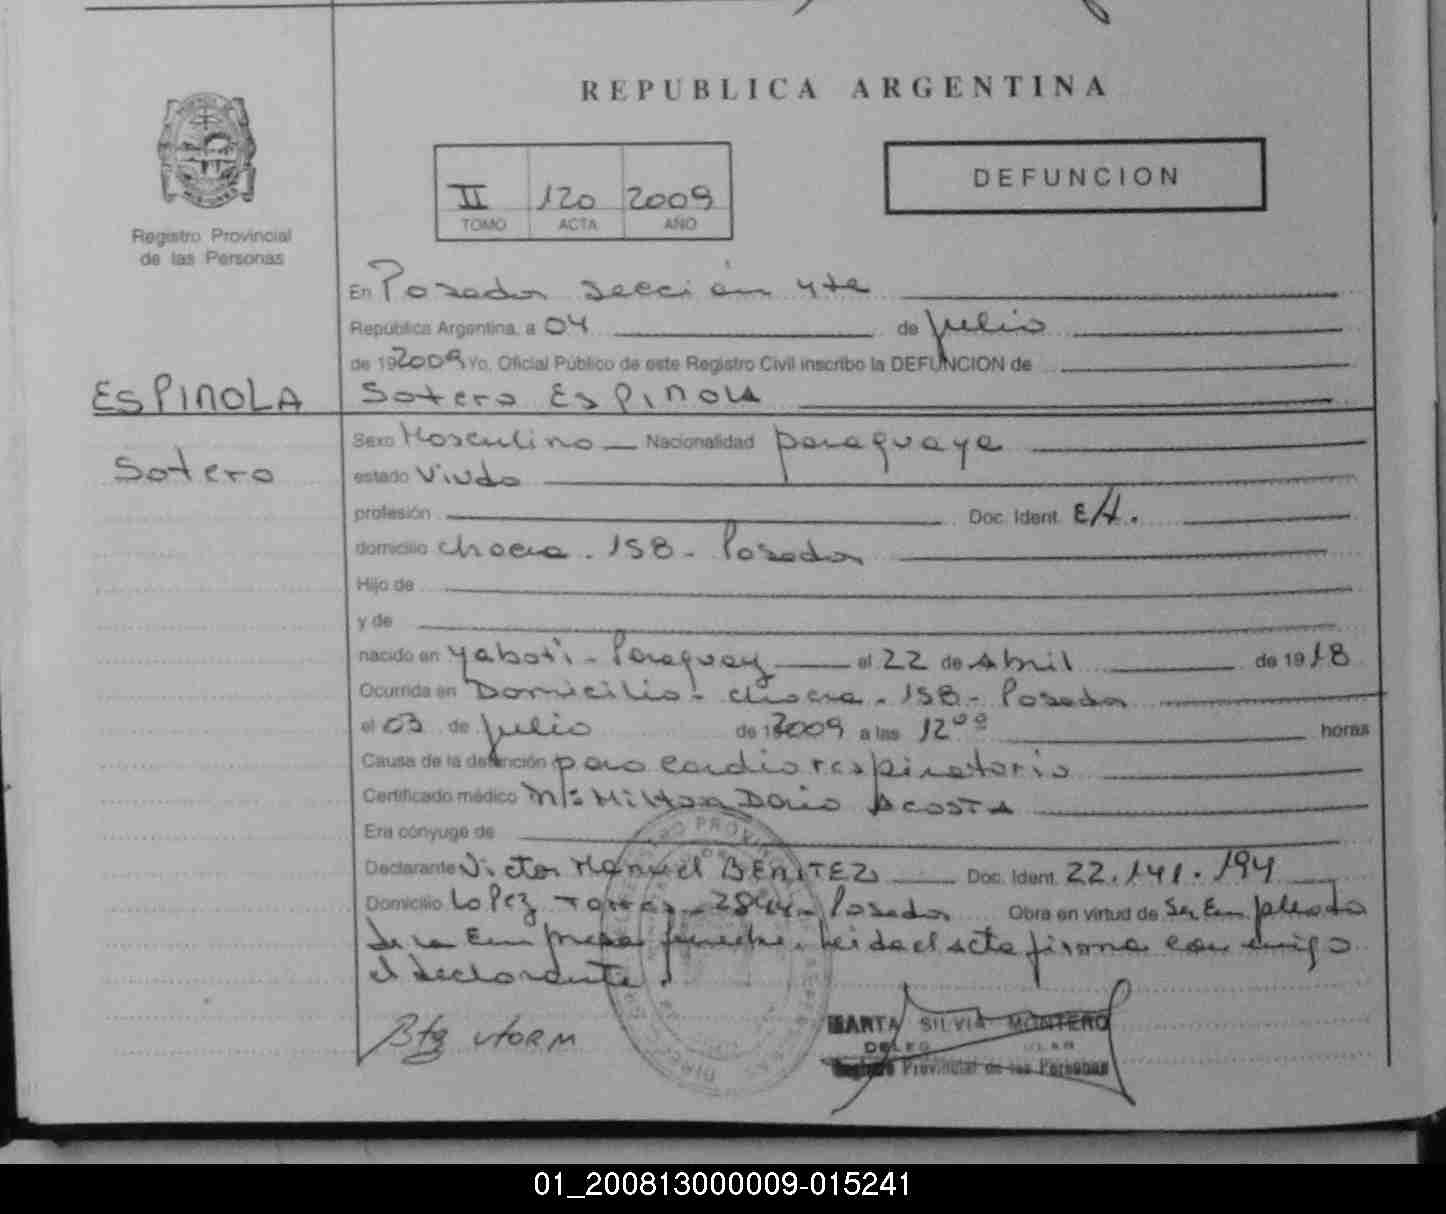 REPUBLICA ARGENTINA
II 120 2009
TOMO ACTA AÑO
DEFUNCION
Registro Provincial
de las Personas
En Posadas sección 4ta
República Argentina, a 04 de Julio
de 192009 Yo, Oficial Público de este Registro Civil inscribo la DEFUNCION de
ESPINOLA
Sotero ESPINOLA
Sotero
Sexo Masculino Nacionalidad paraguaya
estado Viudo
profesión Doc. Ident. E/A.
domicilio chacra - 158 - Posadas
Hijo de
y de
nacido en Yaboti - Paraguay el 22 de Abril de 1918
Ocurrida en Domicilio - chacra - 158 - Posadas
el 03 de Julio de 192009 a las 12ºº horas
Causa de la defunción paro cardiorespiratorio
Certificado médico Milton Dario ACOSTA
Era cónyuge de
Declarante Victor Manuel BENITEZ Doc. Ident. 22.141.194
Domicilio Lopez Torres - 2844 - Posadas Obra en virtud de Ser Empleado
de la Empresa funebre. Leida el acta firma conmigo
el declarante.
MARTA SILVIA MONTERO
Registro Provincial de las Personas
01_200813000009-015241